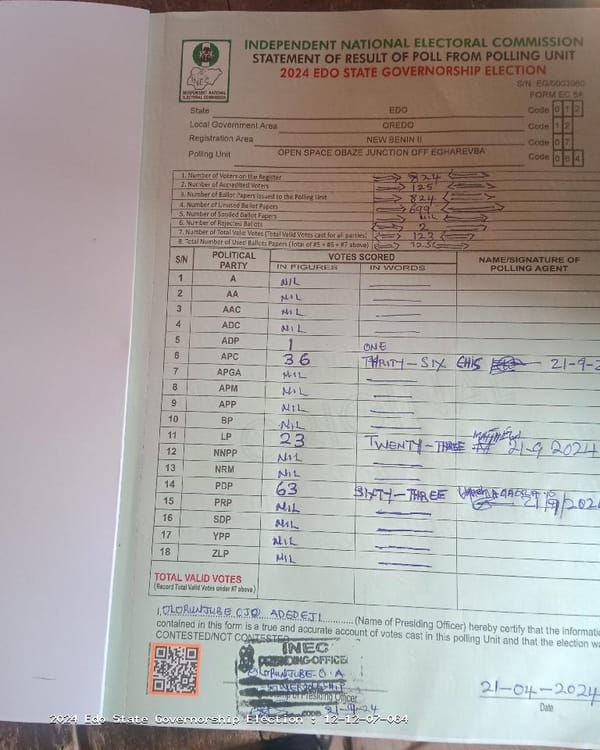 INDEPENDENT NATIONAL ELECTORAL COMMISSION
STATEMENT OF RESULT OF POLL FROM POLLING UNIT
2024 EDO STATE GOVERNORSHIP ELECTION
INDEPENDENT NATIONAL ELECTORAL COMMISSION
FORM EC 8A
State EDO Code 1 2
Local Government Area OREDO Code 1 2
Registration Area NEW BENIN II Code 0 7
Polling Unit OPEN SPACE OBAZE JUNCTION OFF EGHAREVBA Code 0 8 4
1. Number of Voters on the Register 824
2. Number of Accredited Voters 125
3. Number of Ballot Papers Issued to the Polling Unit 824
4. Number of Unused Ballot Papers 699
5. Number of Spoiled Ballot Papers NIL
6. Number of Rejected Ballots 2
7. Number of Total Valid Votes (Total Valid Votes cast for all parties) 123
8. Total Number of Used Ballots Papers (Total of #5 + #6 + #7 above) 125
S/N POLITICAL PARTY VOTES SCORED NAME/SIGNATURE OF POLLING AGENT
IN FIGURES IN WORDS
1 A NIL
2 AA NIL
3 AAC NIL
4 ADC NIL
5 ADP 1 ONE
6 APC 36 THRITY-SIX EHIS 21-9-2
7 APGA NIL
8 APM NIL
9 APP NIL
10 BP NIL
11 LP 23 TWENTY-THREE MATTHEW 21-9 2024
12 NNPP NIL
13 NRM NIL
14 PDP 63 SIXTY-THREE 21/9/202
15 PRP NIL
16 SDP NIL
17 YPP NIL
18 ZLP NIL
TOTAL VALID VOTES
(Record Total Valid Votes under #7 above)
I, OLORUNJUBE OJO ADEDEJI (Name of Presiding Officer) hereby certify that the informati
contained in this form is a true and accurate account of votes cast in this polling Unit and that the election wa
CONTESTED/NOT CONTESTED
INEC
PRESIDING OFFICER
OLORUNJUBE O. A
of Presiding Officer
21-04-2024
Date
2024 Edo State Governorship Election : 12-12-07-084